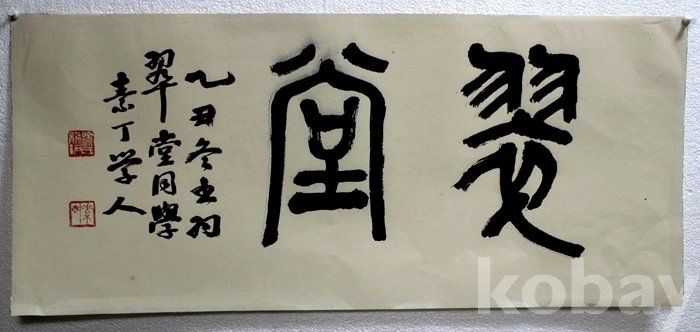 翠堂
乙丑冬書為
翠堂同學
素丁学人
kobay